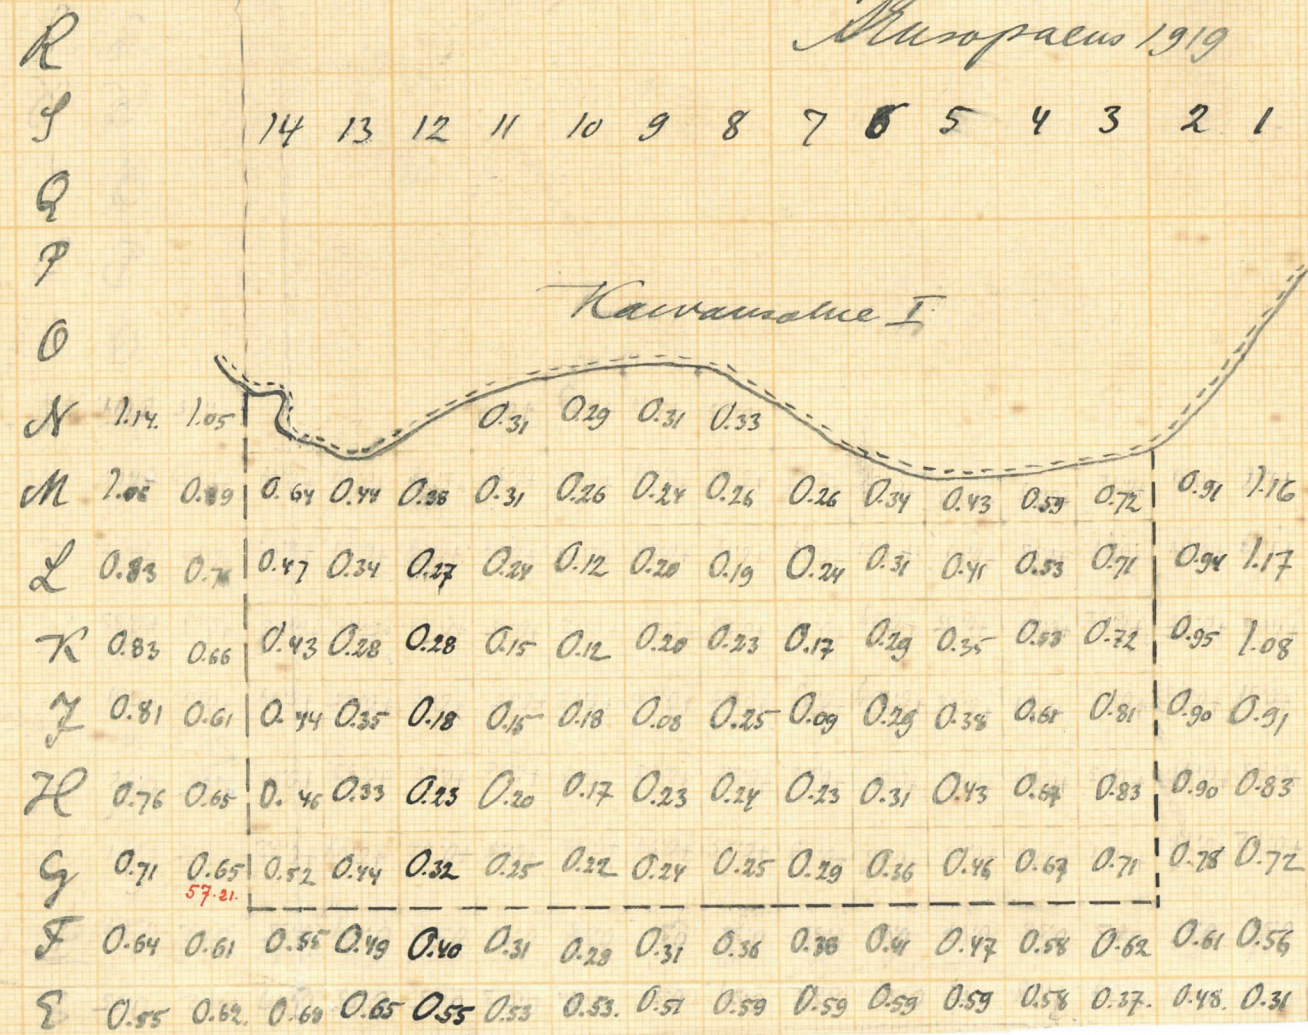 R
1919
S 14 13 12 11 10 9 8 7 6 5 4 3 2 1
Q
P
I
O
N 1.14. 1.05 0.31 0.29 0.31 0.33
M 0.64 0.44 0.38 0.31 0.26 0.24 0.26 0.26 0.34 0.43 0.59 0.72 0.91 1.16
L 0.83 0.47 0.34 0.27 0.24 0.12 0.20 0.19 0.24 0.31 0.41 0.53 0.71 0.94 1.17
K 0.83 0.66 0.43 0.28 0.28 0.15 0.12 0.20 0.23 0.17 0.29 0.35 0.72 0.95 1.08
J 0.81 0.61 0.44 0.35 0.18 0.15 0.18 0.08 0.25 0.09 0.29 0.38 0.61 0.81 0.90 0.91
H 0.76 0.65 0.46 0.33 0.23 0.20 0.17 0.23 0.24 0.23 0.31 0.43 0.83 0.90 0.83
G 0.71 0.65 0.52 0.44 0.32 0.25 0.22 0.24 0.25 0.29 0.36 0.46 0.67 0.71 0.78 0.72
57.21.
F 0.64 0.61 0.55 0.49 0.40 0.31 0.29 0.31 0.36 0.38 0.41 0.47 0.58 0.62 0.61 0.56
E 0.55 0.62. 0.60 0.65 0.55 0.53 0.53. 0.51 0.59 0.59 0.59 0.59 0.58 0.37. 0.48. 0.31